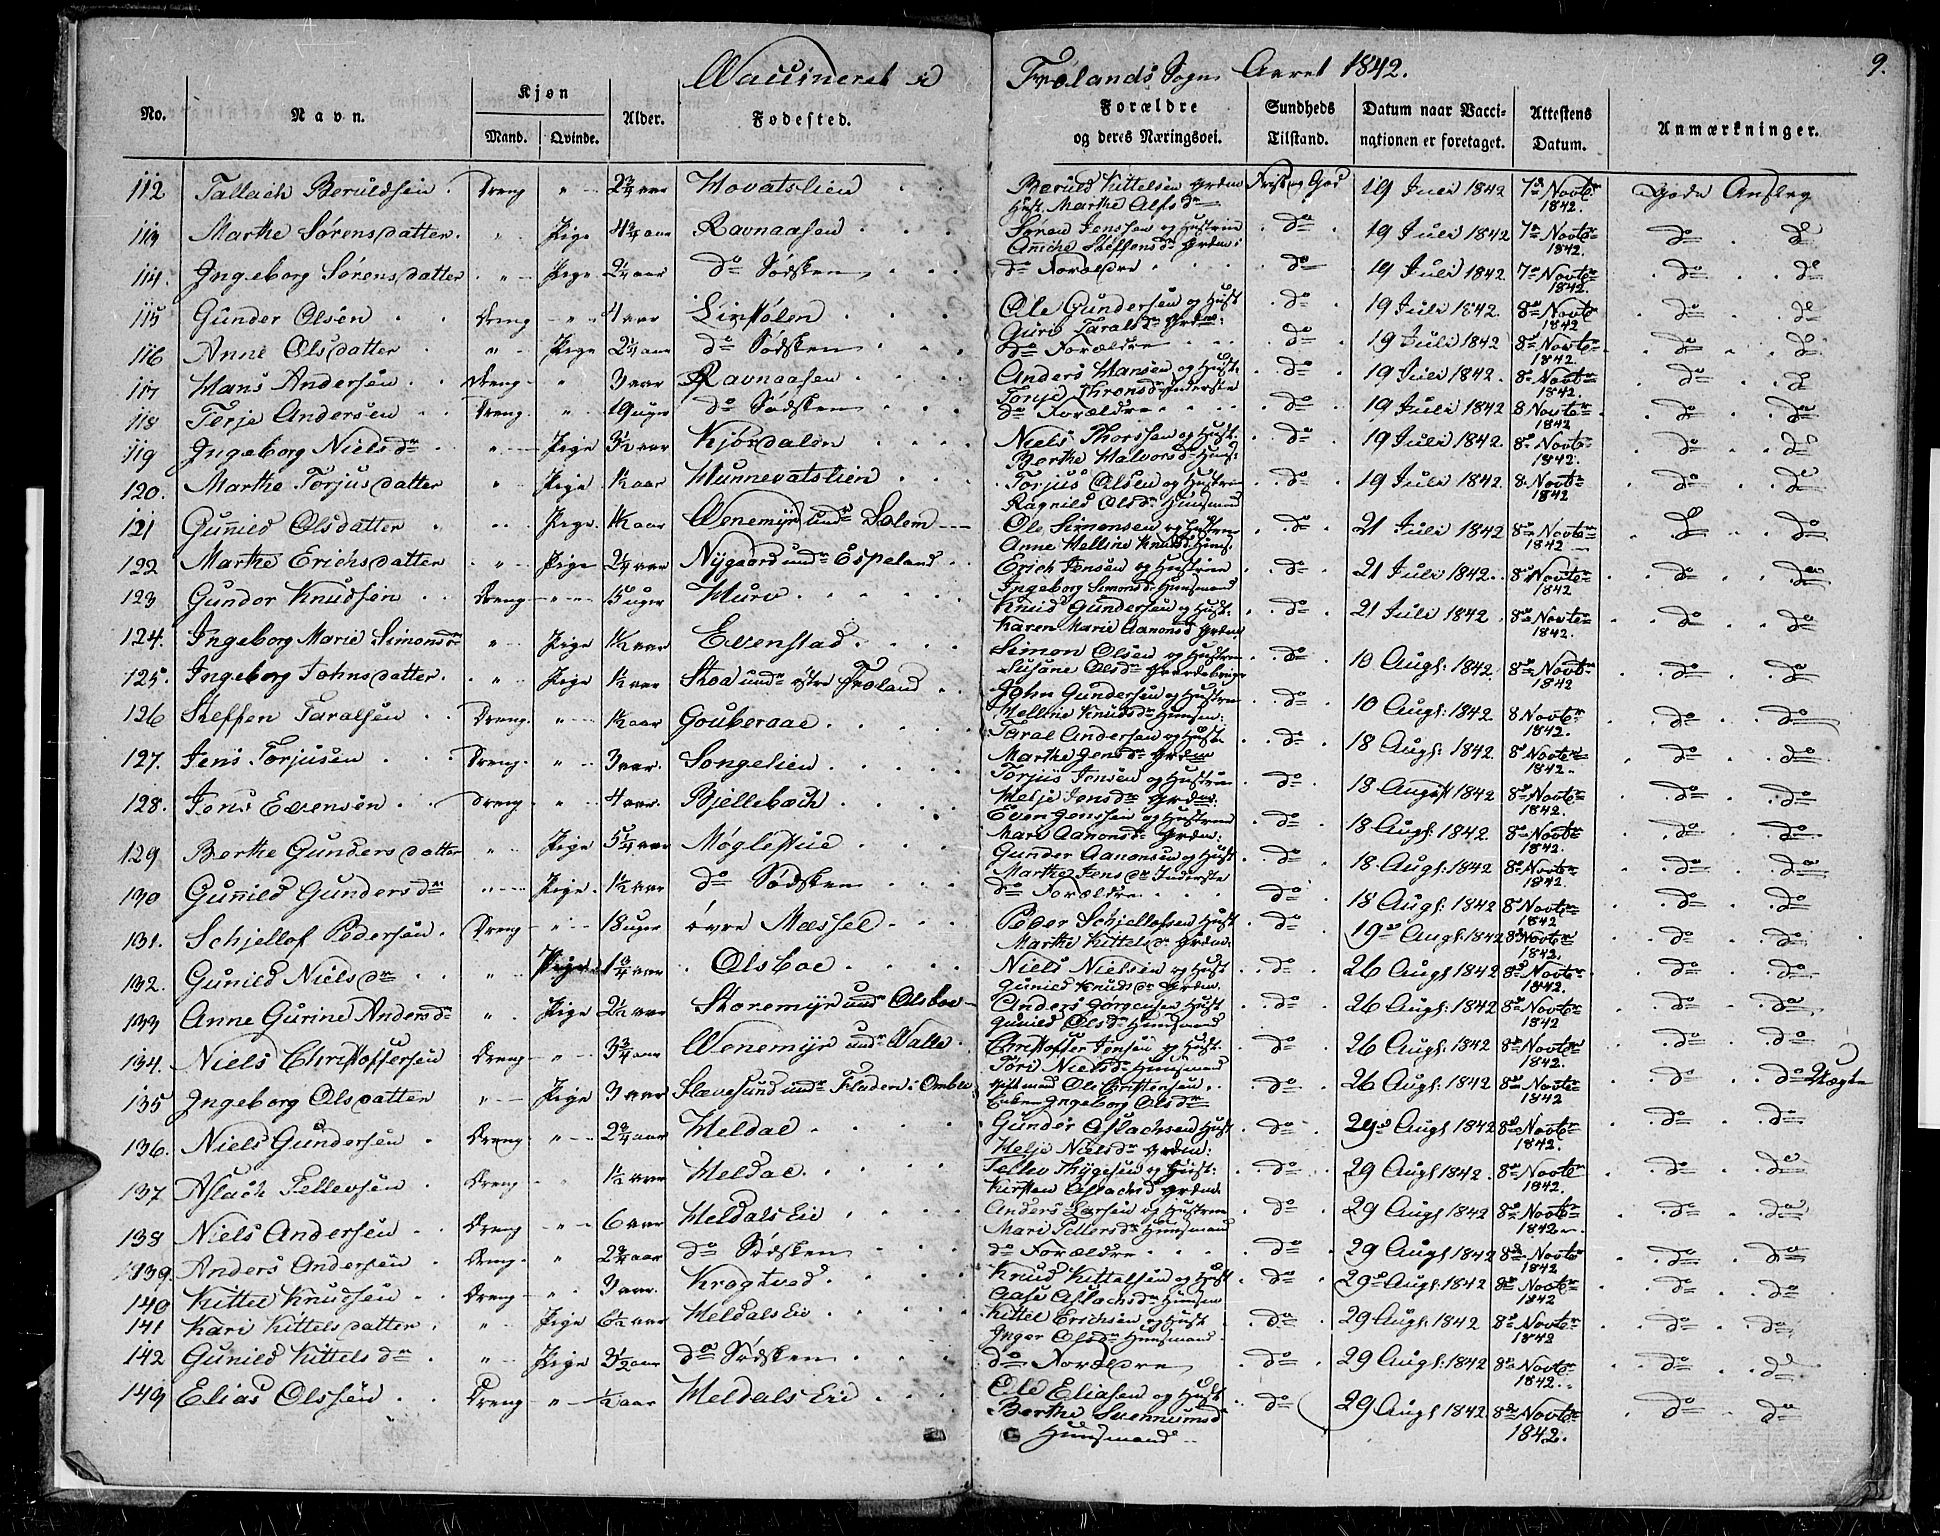 Vaccineret i Frolands Sogn Aaret 1842. 9.
No. Navn. Kjøn Mand. Qvinde. Alder. Fødested. Forældre og deres Næringsvei. Sundheds Tilstand. Datum naar Vaccinationen er foretaget. Attestens Datum. Anmærkninger.
112 Tallach Beruldsen Dreng " 2 3/4 aar Hovatslien Beruld Kittelsen Grdm Hust. Marthe Alfsdr Frisk og God 19 Juli 1842 7de Novbr 1842. gode Ansteg
113 Marthe Sørensdatter " Pige 4 3/4 aar Ravnaasen Søren Jensen og Hustrue Aniche Steffensdr Grdm: do 19 Juli 1842 7de Novbr 1842. do do
114. Ingeborg Sørensdatter " Pige 2 1/4 aar do Sødsken do Forældre do 19 Juli 1842 7de Novbr 1842. do do
115 Gunder Olsen Dreng " 4 aar Linstølen Ole Gundersen og Hust Guro Taralsdr Grdm: do 19 Juli 1842. 8de Novbr 1842 do do
116 Anne Olsdatter " Pige 2 1/4 aar do Sødsken do Forældre do 19 Juli 1842 8de Novbr 1842. do do
117 Hans Andersen Dreng " 3 aar Ravnaasen Anders Hansen og Hust. Tonje Thronsdr Inderste do 19 Juli 1842. 8de Novbr 1842. do do
118 Terje Andersen Dreng " 19 uger do Sødsken do Forældre do 19 Juli 1842 8 Novbr 1842 do do
119 Ingeborg Nielsdr " Pige 3 1/2 aar Kjørdalen Niels Thorsen og Hust. Berthe Halvorsdr Huus: do 19 Juli 1842. 8de Novbr 1842. do do
120. Marthe Torjusdatter " Pige 1/2 aar Hunnevatslien Torjus Olsen og Hustrue Ragnild Olsdr Huusmand do 19 Juli 1842. 8 Novbr 1842 do do
121 Gunild Olsdatter " Pige 1 1/2 aar Venemyr undr Solem Ole Simonsen og Hustrue Anne Helline Knudsd. Huus. do 21 Juli 1842 8de Novbr 1842 do do
122 Marthe Erichsdatter " Pige 2 1/4 aar Nygaard undr Espeland Erich Jensen og Hustrue Ingeborg Simonsdr Huusmand do 21 Juli 1842. 8de Novbr 1842 do do
123 Gunder Knudsen Dreng " 15 uger Hurv Knud Gundersen og Hust. Karen Marie Aanonsd Grdm do 21 Juli 1842. 8de Novbr 1842. do do
124. Ingeborg Marie Simonsdr " Pige 1 1/2 aar Evenstad Simon Olsen og Hustrue Susane Olsdr Gaardebruger do 10 Augs: 1842. 8de Novbr 1842 do do
125. Ingeborg Johnsdatter " Pige 1/2 aar Skoa undr østre Froland John Gundersen og Hustrue Helline Knudsdr Huusm: do 10 Augs: 1842 8 Novbr 1842. do do
126 Steffen Taralsen Dreng " 1 1/2 aar Gouberaae Taral Andersen og Hust. Marthe Jensdr Grdm do 18 Augs: 1842. 8de Novbr 1842. do do
127. Jens Torjusen Dreng " 3 aar. Songelien Torjus Jensen og Hustrue Helje Jensdr Grdm: do 18 August 1842 8de Novbr 1842. do do
128. Jens Evensen Dreng " 4 aar. Bjellebæch Even Jenssen og Hustrue Mari Aanonsdr Grdm: do 18 Augs: 1842. 8de Novbr 1842. do do
129 Berthe Gundersdatter " Pige 5 1/4 aar Møglestue Gunder Aanonsen og Hust Marthe Jensdr Inderste do 18 Augs: 1842 8de Novbr 1842. do do
130 Gunild Gundersdr " Pige 1 1/2 aar do Sødsken do Forældre do 18 Augs: 1842 8de Novbr 1842 do do
131. Schjellof Pedersen Dreng " 18 uger øvre Mæssel Peder Schjellofsen Hust Marthe Kittelsdr Grdm: do 19de Augs: 1842 8de Novbr 1842. do do
132. Gunild Nielsdr " Pige 1 3/4 aar Olsboe Niels Nielsen og Hust Gunild Knudsdr Grdm. do 26 Augs 1842 8de Novbr 1842. do do
133 Anne Gurine Andersdr " Pige 2 1/2 aar Storemyr undr Olsboe Anders Jørgensen Hust Gunild Olsdr Huusmand do 26 Augs: 1842 8de Novbr 1842 do do
134. Niels Christoffersen Dreng " 3 3/4 aar Venemyr undr Valle Christoffer Jensen og Hust. Tore Nielsdr Huusmand do 26 Augs: 1842 8de Novbr 1842. do do
135 Ingeborg Olsdatter " Pige 3 aar Slævesund undr Fladen i Omblie Ole Christensen Enken Ingeborg Olsdr do 26 Augs: 1842 8de Novbr 1842 do do Hægte
136. Niels Gundersen Dreng " 2 3/4 aar Heldal Gunder Aslachsen Hust Helje Nielsdr Grdm: do 29de Augs 1842 8de Novbr 1842. do do
137 Aslach Tellevsen Dreng " 1/2 aar Heldal Tellev Thygesen og Hust: Kirsten Aslachsd Grdm: do 29 Augs: 1842. 8de Novbr 1842. do do
138 Niels Andersen Dreng " 6 aar Heldals Eie Anders Larsen og Hustrue Mari Pettersdr Huusmand do 29 Augs: 1842 8de Novbr 1842 do do
139. Anders Andersen Dreng " 2 3/4 aar do Sødsken do Forældre do 29 Augs 1842 8de Novbr 1842 do do
140 Kittel Knudsen Dreng " 3 aar. Krogtved Knud Kittelsen og Hust Aase Aslachsdr Huusm do 29de Augs: 1842 8de Novbr 1842 do do
141 Kari Kittelsdatter " Pige 6 1/2 aar Heldals Eie Kittel Erichsen og Hust Inger Olsdr Huusmand. do 29 Augs: 1842 8de Novbr 1842 do do
142 Gunild Kittelsdr " Pige 3 1/2 aar do Sødsken do Forældre do 29 Augs 1842 8de Novbr 1842. do do
143 Elias Olssen Dreng " 1/2 aar Heldals Eie Ole Eliasen og Hust Berthe Svennumsd Huusmand do 29 Augs 1842. 8de Novbr 1842. do do